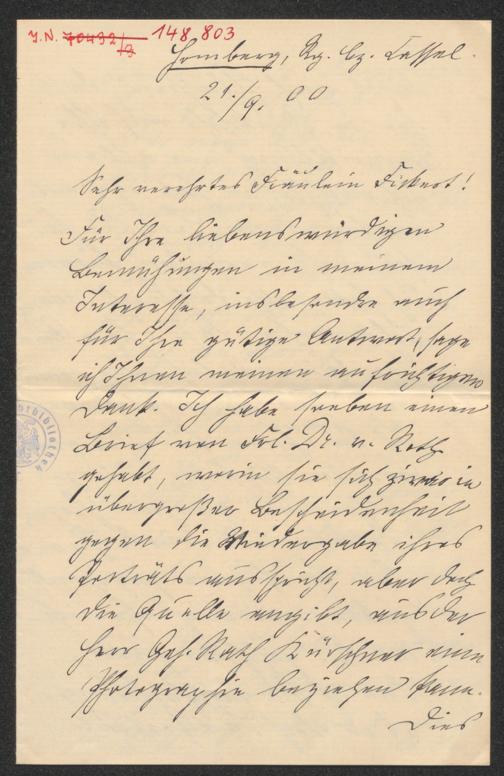 J.N. 70492/3 148.803
Homberg, Rg. bz. Cassel.
21./9. 00
Sehr verehrtes Fräulein Fickert!
Für Ihre liebenswürdigen
Bemühungen in meinem
Interesse, insbesondre auch
für Ihre gütige Antwort, sage
ich Ihnen meinen aufrichtigen
Dank. Ich habe soeben einen
Brief von Frl. Dr. v. Roth
gehabt, worin sie sich zwar in
übergroßer Bescheidenheit
gegen die Wiedergabe ihres
Porträts ausspricht, aber doch
die Quelle angibt, aus der
Herr Geh. Rath Kürschner eine
Photographie beziehen kann.
Dies